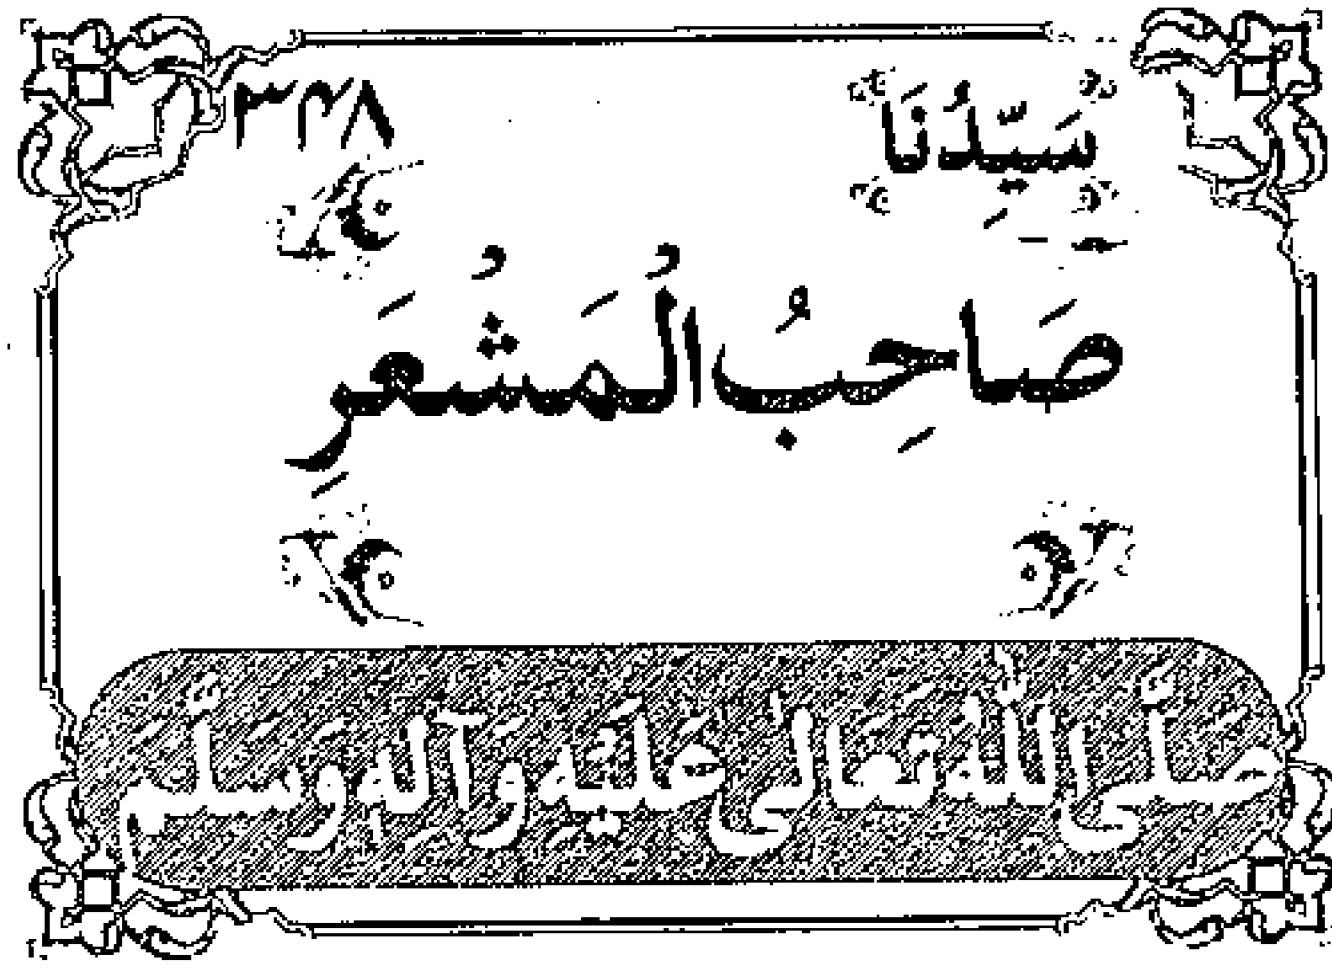 سَيِّدُنَا ٣٣٨
صَاحِبُ الْمَشْعَرِ
صَلَّى اللّٰهُ تَعَالٰى عَلَيْهِ وَآلِهٖ وَسَلَّمَ